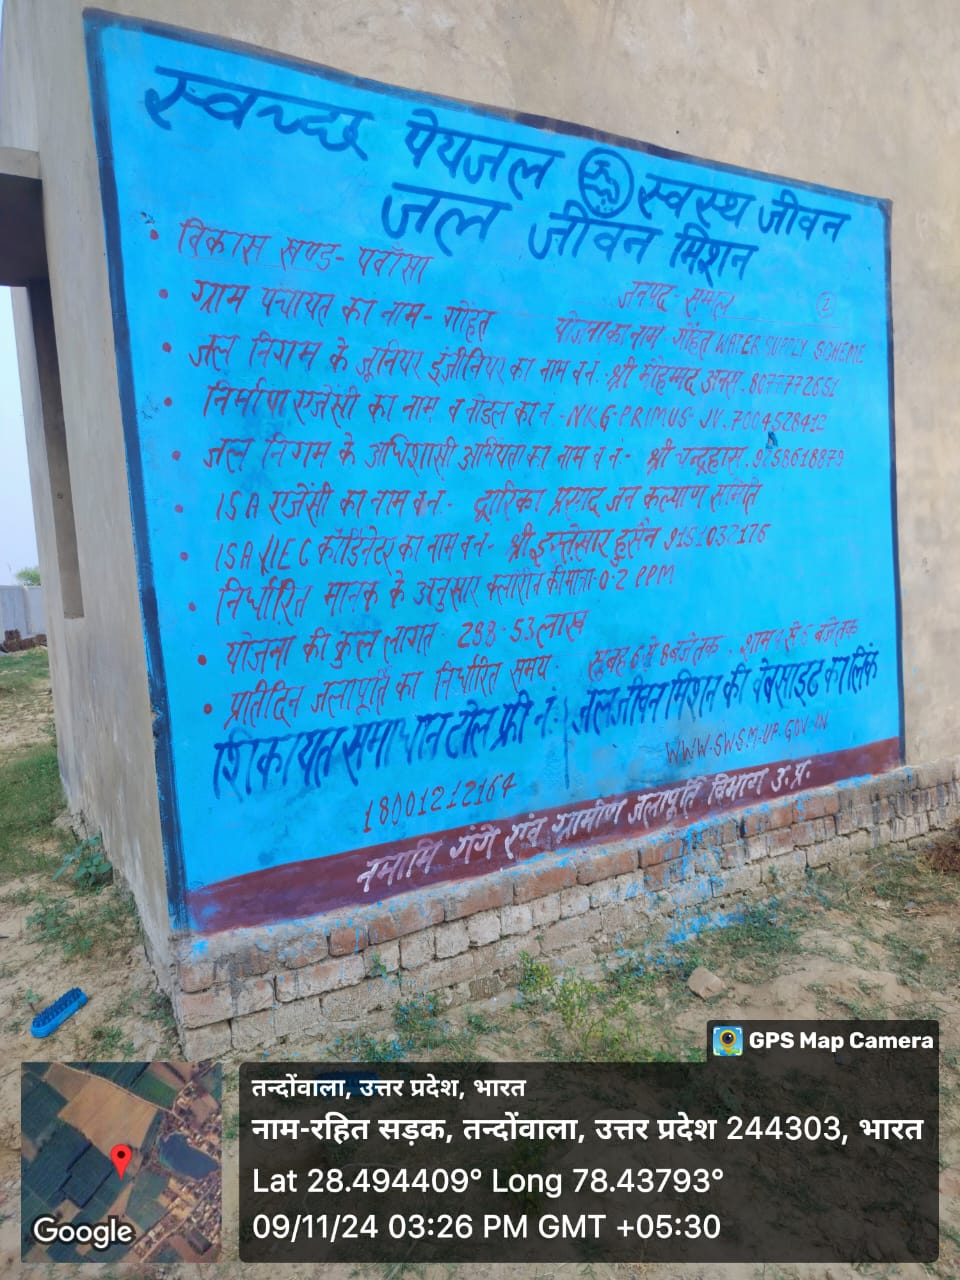 स्वच्छ पेयजल स्वस्थ जीवन
जल जीवन मिशन
विकास खण्ड- पवाँसा जनपद- सम्भल
ग्राम पंचायत का नाम- गौंहत योजना का नाम- गौंहत WATER SUPPLY SCHEME
जल निगम के जूनियर इंजीनियर का नाम व नं. श्री मौहम्मद अनस. 8077772651
निर्माण एजेंसी का नाम व नोडल का नं.- NKG-PRIMUS-JV. 7004528412
जल निगम के अधिशासी अभियंता का नाम व नं- श्री चन्द्रहास. 9758618879
ISA एजेंसी का नाम व नं.- द्वारिका प्रसाद जन कल्याण समिति
ISA/IEC कॉर्डिनेटर का नाम व नं- श्री इफ्तेखार हुसैन 9151032176
निर्धारित मानक के अनुसार क्लोरीन की मात्रा-0.2 PPM
योजना की कुल लागत- 288.53 लाख
प्रतिदिन जलापूर्ति का निर्धारित समय- सुबह 6 से 8 बजे तक. शाम 4 से 6 बजे तक
शिकायत समाधान टोल फ्री नं. जल जीवन मिशन की वेबसाइट का लिंक
18001212164 WWW.SWSM-UP.GOV.IN
नमामि गंगे एंव ग्रामीण जलापूर्ति विभाग उ.प्र.
GPS Map Camera
तन्दोंवाला, उत्तर प्रदेश, भारत
नाम-रहित सड़क, तन्दोंवाला, उत्तर प्रदेश 244303, भारत
Lat 28.494409° Long 78.43793°
09/11/24 03:26 PM GMT +05:30
Google